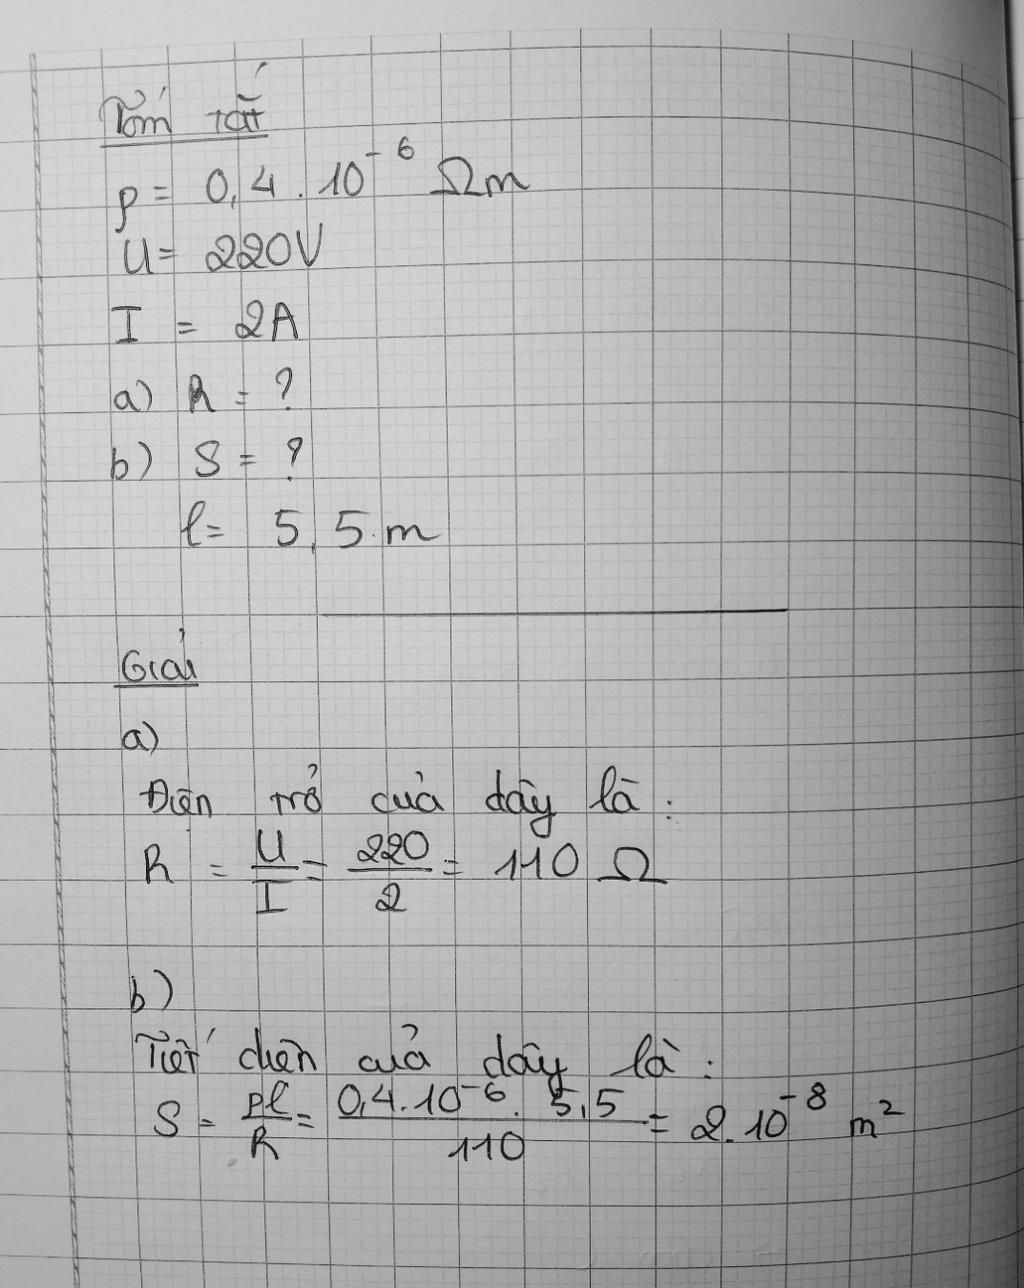 Tóm tắt
ρ = 0,4 . 10⁻⁶ Ωm
U = 220V
I = 2A
a) R = ?
b) S = ?
l = 5,5 m
Giải
a)
Điện trở của dây là :
R = U/I = 220/2 = 110 Ω
b)
Tiết diện của dây là :
S = ρl/R = 0,4.10⁻⁶. 5,5/110 = 2.10⁻⁸ m²